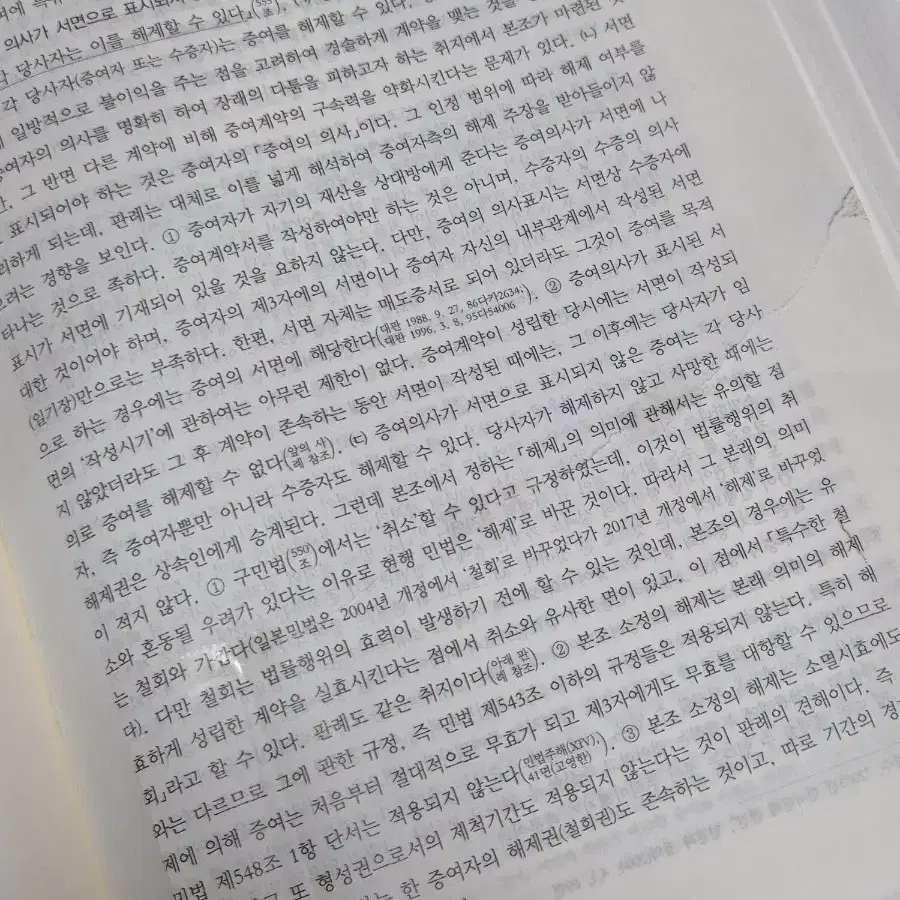 의사가 서면으로 표시되지
각 당사자는 이를 해제할 수 있다」(555조).
각 당사자(증여자 또는 수증자)는 증여를 해제할 수 있다.
일방적으로 불이익을 주는 점을 고려하여 경솔하게 계약을 맺는 것을
증여자의 의사를 명확히 하여 장래의 다툼을 피하고자 하는 취지에서 본조가 마련된 것
그 반면 다른 계약에 비해 증여계약의 구속력을 약화시킨다는 문제가 있다. (ㄴ) 서면
표시되어야 하는 것은 증여자의 「증여의 의사」이다. 그 인정 범위에 따라 해제 여부를
하게 되는데, 판례는 대체로 이를 넓게 해석하여 증여자측의 해제 주장을 받아들이지 않
으려는 경향을 보인다. ① 증여자가 자기의 재산을 상대방에게 준다는 증여의사가 서면에 나
타나는 것으로 족하다. 증여계약서를 작성하여야만 하는 것은 아니며, 수증자의 수증의 의사
표시가 서면에 기재되어 있을 것을 요하지 않는다. 다만, 증여의 의사표시는 서면상 수증자에
대한 것이어야 하며, 증여자의 제3자에의 서면이나 증여자 자신의 내부관계에서 작성된 서면
(일기장)만으로는 부족하다. 한편, 서면 자체는 매도증서로 되어 있더라도 그것이 증여를 목적
으로 하는 경우에는 증여의 서면에 해당한다(대판 1988. 9. 27, 86다카2634; 대판 1996. 3. 8, 95다54006). ② 증여의사가 표시된 서
면의 '작성시기'에 관하여는 아무런 제한이 없다. 증여계약이 성립한 당시에는 서면이 작성되
지 않았더라도 그 후 계약이 존속하는 동안 서면이 작성된 때에는, 그 이후에는 당사자가 임
의로 증여를 해제할 수 없다(앞의 사례 참조). (ㄷ) 증여의사가 서면으로 표시되지 않은 증여는 각 당사
자, 즉 증여자뿐만 아니라 수증자도 해제할 수 있다. 당사자가 해제하지 않고 사망한 때에는
해제권은 상속인에게 승계된다. 그런데 본조에서 정하는 「해제」의 의미에 관해서는 유의할 점
이 적지 않다. ① 구민법(550조)에서는 '취소'할 수 있다고 규정하였는데, 이것이 법률행위의 취
소와 혼동될 우려가 있다는 이유로 현행 민법은 '해제'로 바꾼 것이다. 따라서 그 본래의 의미
는 철회와 가깝다(일본민법은 2004년 개정에서 '철회'로 바꾸었다가 2017년 개정에서 '해제'로 바꾸었
다). 다만 철회는 법률행위의 효력이 발생하기 전에 할 수 있는 것인데, 본조의 경우에는 유
효하게 성립한 계약을 실효시킨다는 점에서 취소와 유사한 면이 있고, 이 점에서 「특수한 철
회」라고 할 수 있다. 판례도 같은 취지이다(아래 판례 참조). ② 본조 소정의 해제는 본래 의미의 해제
와는 다르므로 그에 관한 규정, 즉 민법 제543조 이하의 규정들은 적용되지 않는다. 특히 해
제에 의해 증여는 처음부터 절대적으로 무효가 되고 제3자에게도 무효를 대항할 수 있으므로
민법 제548조 1항 단서는 적용되지 않는다(민법주해(XIV), 41면(고영한)). ③ 본조 소정의 해제는 소멸시효에도
또 형성권으로서의 제척기간도 적용되지 않는다는 것이 판례의 견해이다. 즉
한 증여자의 해제권(철회권)도 존속하는 것이고, 따로 기간의 경